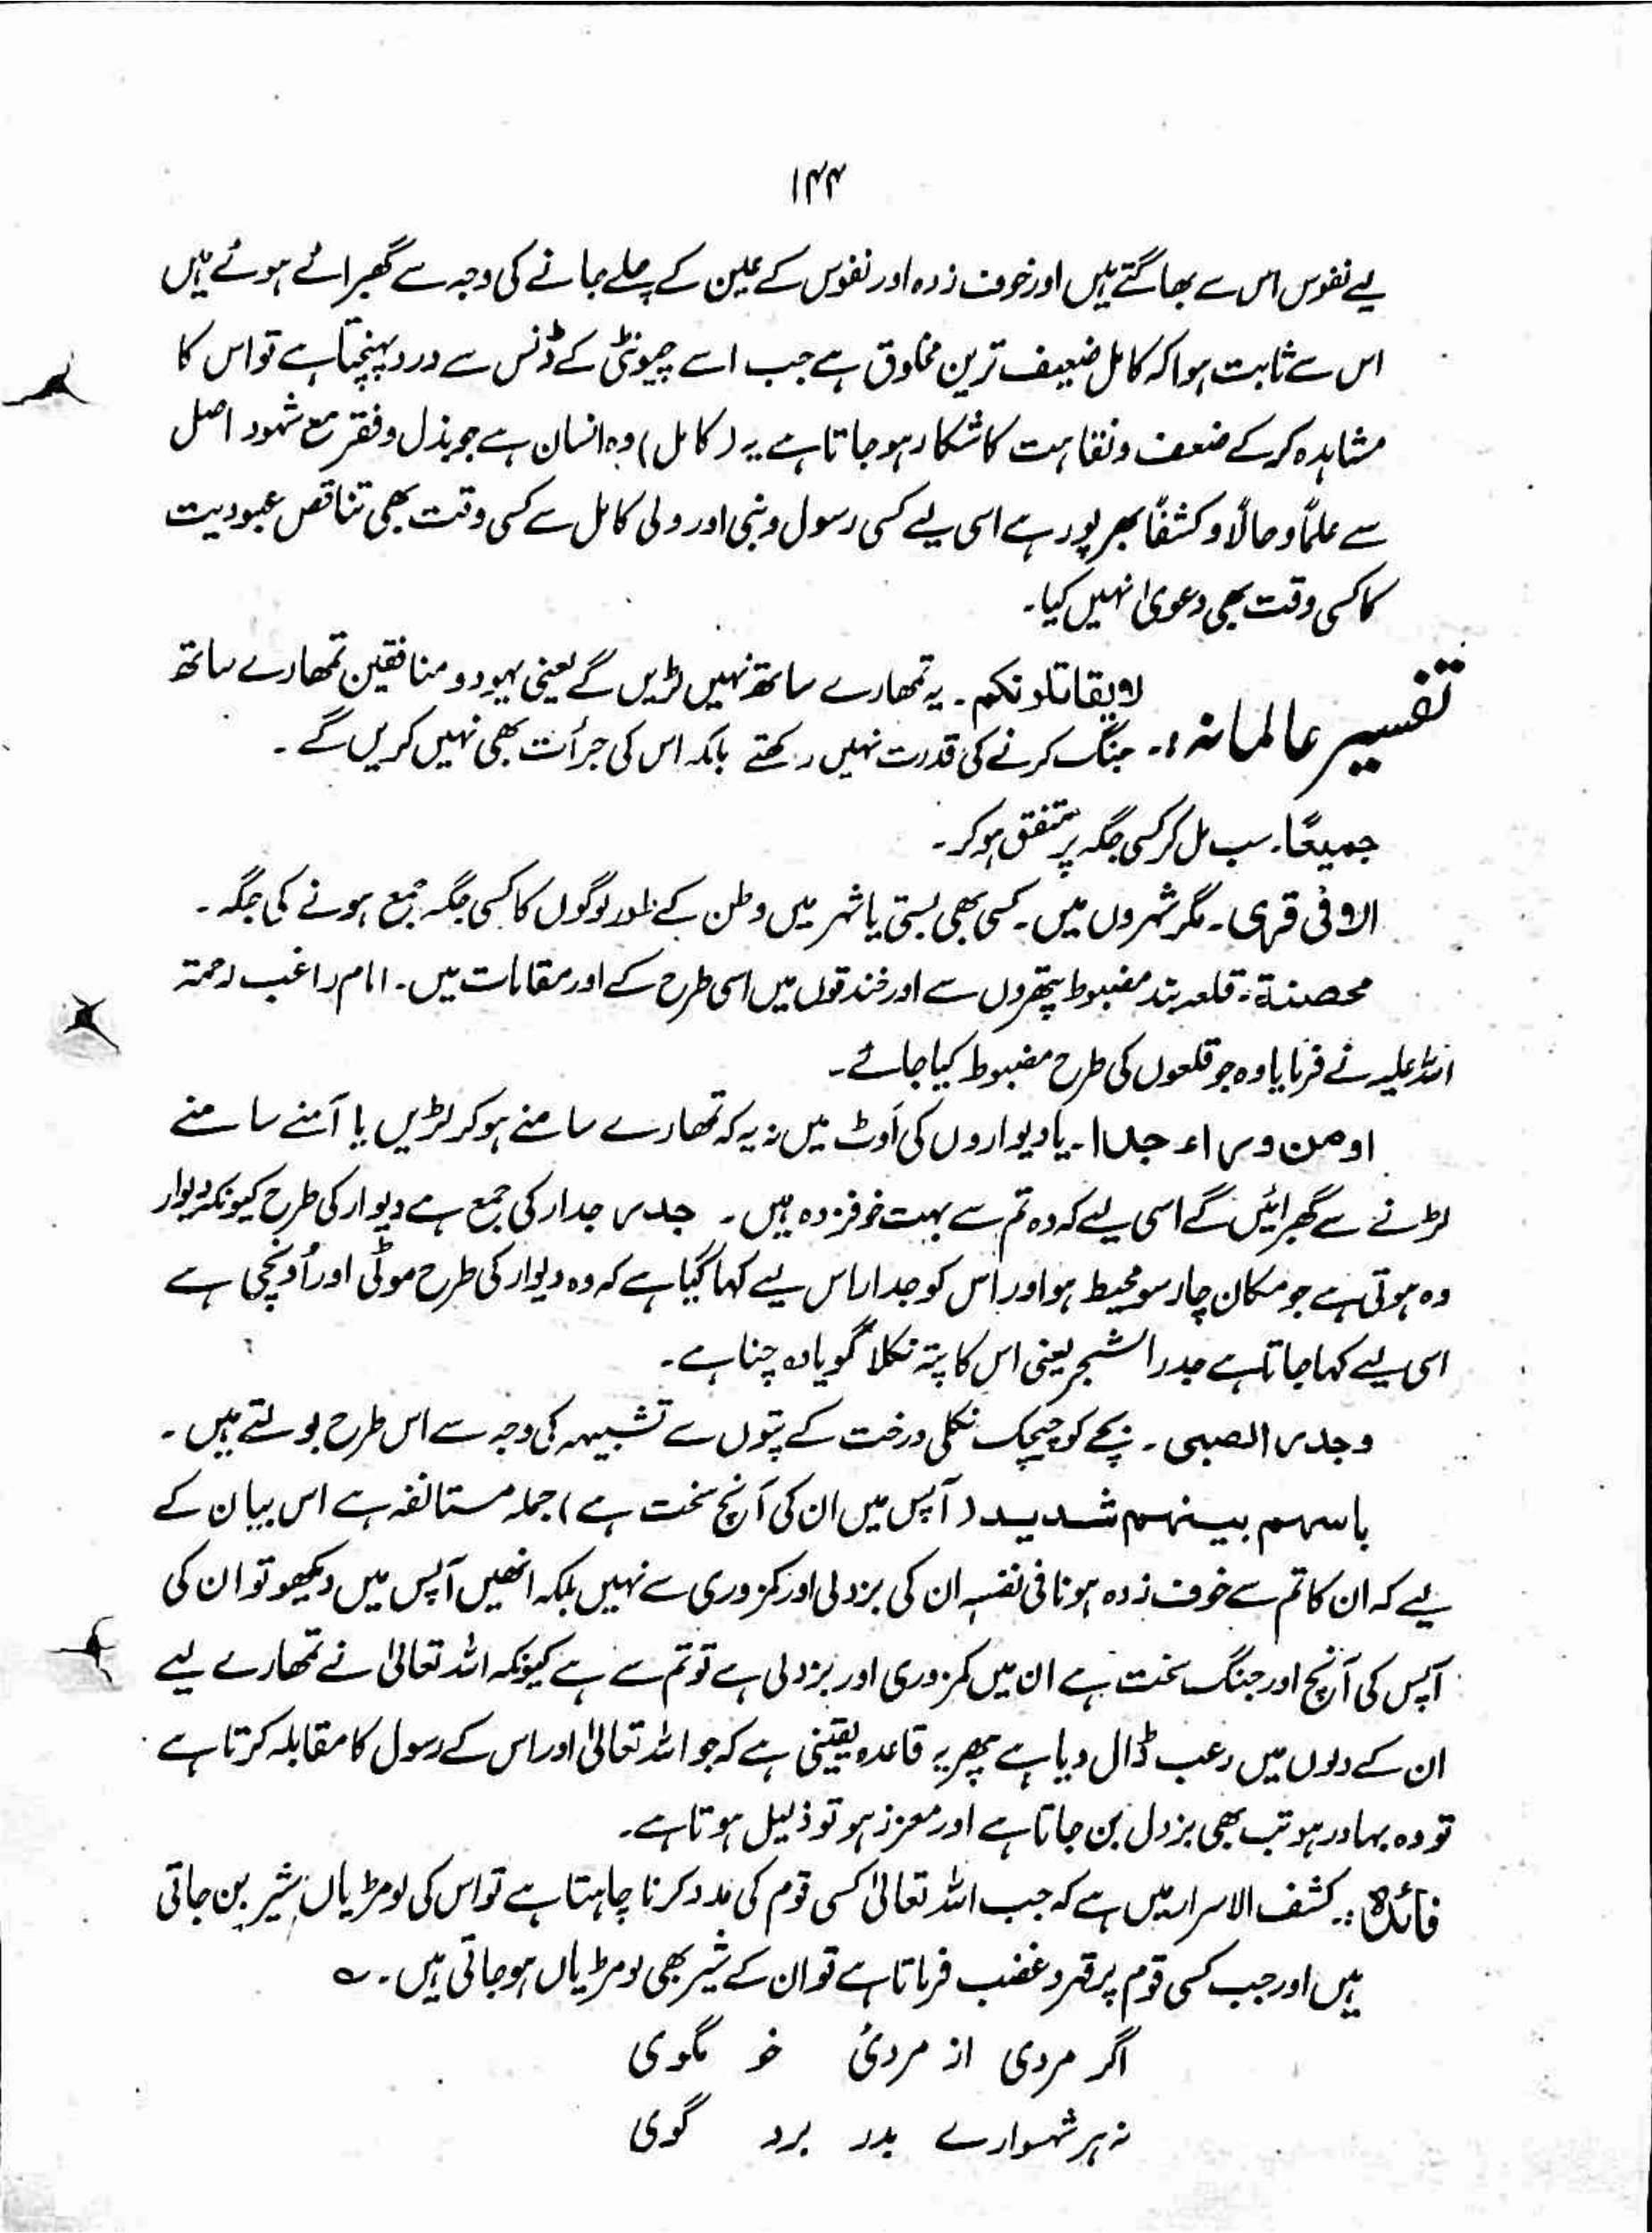 ۱۴۴
لیے نفوس اس سے بھاگتے ہیں اور خوف زدہ اور نفوس کے عین کے چلے جانے کی وجہ سے گھبرائے ہوئے ہیں
اس سے ثابت ہوا کہ کامل ضعیف ترین مخلوق ہے جب اسے چیونٹی کے ڈنس سے درد پہنچتا ہے تو اس کا
مشاہدہ کر کے ضعف و نقاہت کا شکار ہو جاتا ہے یہ (کامل) وہ انسان ہے جو بذل و فقر مع شہود اصل
سے علماً و حالاً و کشفاً بھرپور ہے اسی لیے کسی رسول و نبی اور ولی کامل سے کسی وقت بھی تناقص عبودیت
کا کسی وقت بھی دعویٰ نہیں کیا۔
تفسیر عالمانہ:۔ لا یقاتلونکم۔ یہ تمھارے ساتھ نہیں لڑیں گے یعنی یہود و منافقین تمھارے ساتھ
جنگ کرنے کی قدرت نہیں رکھتے بلکہ اس کی جرأت بھی نہیں کریں گے۔
جمیعًا۔ سب مل کر کسی جگہ پر متفق ہو کر۔
الا فی قری۔ مگر شہروں میں۔ کسی بھی بستی یا شہر میں وطن کے طور لوگوں کا کسی جگہ جمع ہونے کی جگہ۔
محصنۃ:۔ قلعہ بند مضبوط پتھروں سے اور خندقوں میں اسی طرح کے اور مقامات میں۔ امام راغب رحمۃ
اللہ علیہ نے فرمایا وہ جو قلعوں کی طرح مضبوط کیا جائے۔
او من وراء جدر۔ یا دیواروں کی اَوٹ میں نہ یہ کہ تمھارے سامنے ہو کر لڑیں یا آمنے سامنے
لڑنے سے گھبرائیں گے اسی لیے کہ وہ تم سے بہت خوفزدہ ہیں۔ جدر جدار کی جمع ہے دیوار کی طرح کیونکہ دیوار
وہ ہوتی ہے جو مکان چار سو محیط ہو اور اس کو جدار اس لیے کہا گیا ہے کہ وہ دیوار کی طرح موٹی اور اُونچی ہے
اسی لیے کہا جاتا ہے جدر الشجر یعنی اس کا پتہ نکلا گویا وہ چنا ہے۔
و جدر الصبی۔ بچے کو چیچک نکلی درخت کے پتوں سے تشبیہہ کی وجہ سے اس طرح بولتے ہیں۔
باسہم بینہم شدید (آپس میں ان کی آنچ سخت ہے) جملہ مستانفہ ہے اس بیان کے
لیے کہ ان کا تم سے خوف زدہ ہونا فی نفسہٖ ان کی بزدلی اور کمزوری سے نہیں بلکہ انھیں آپس میں دیکھو تو ان کی
آپس کی آنچ اور جنگ سخت ہے ان میں کمزوری اور بزدلی ہے تو تم سے ہے کیونکہ اللہ تعالیٰ نے تمھارے لیے
ان کے دلوں میں رعب ڈال دیا ہے پھر یہ قاعدہ یقینی ہے کہ جو اللہ تعالیٰ اور اس کے رسول کا مقابلہ کرتا ہے
تو وہ بہادر ہو تب بھی بزدل بن جاتا ہے اور معزز ہو تو ذلیل ہوتا ہے۔
فائدہ:۔ کشف الاسرار میں ہے کہ جب اللہ تعالیٰ کسی قوم کی مدد کرنا چاہتا ہے تو اس کی لومڑیاں شیر بن جاتی
ہیں اور جب کسی قوم پر قہر و غضب فرماتا ہے تو ان کے شیر بھی لومڑیاں ہو جاتی ہیں۔ ؎
اگر مردی از مردئ خو مگوی
نہ ہر شہسوارے بدر برد گوی